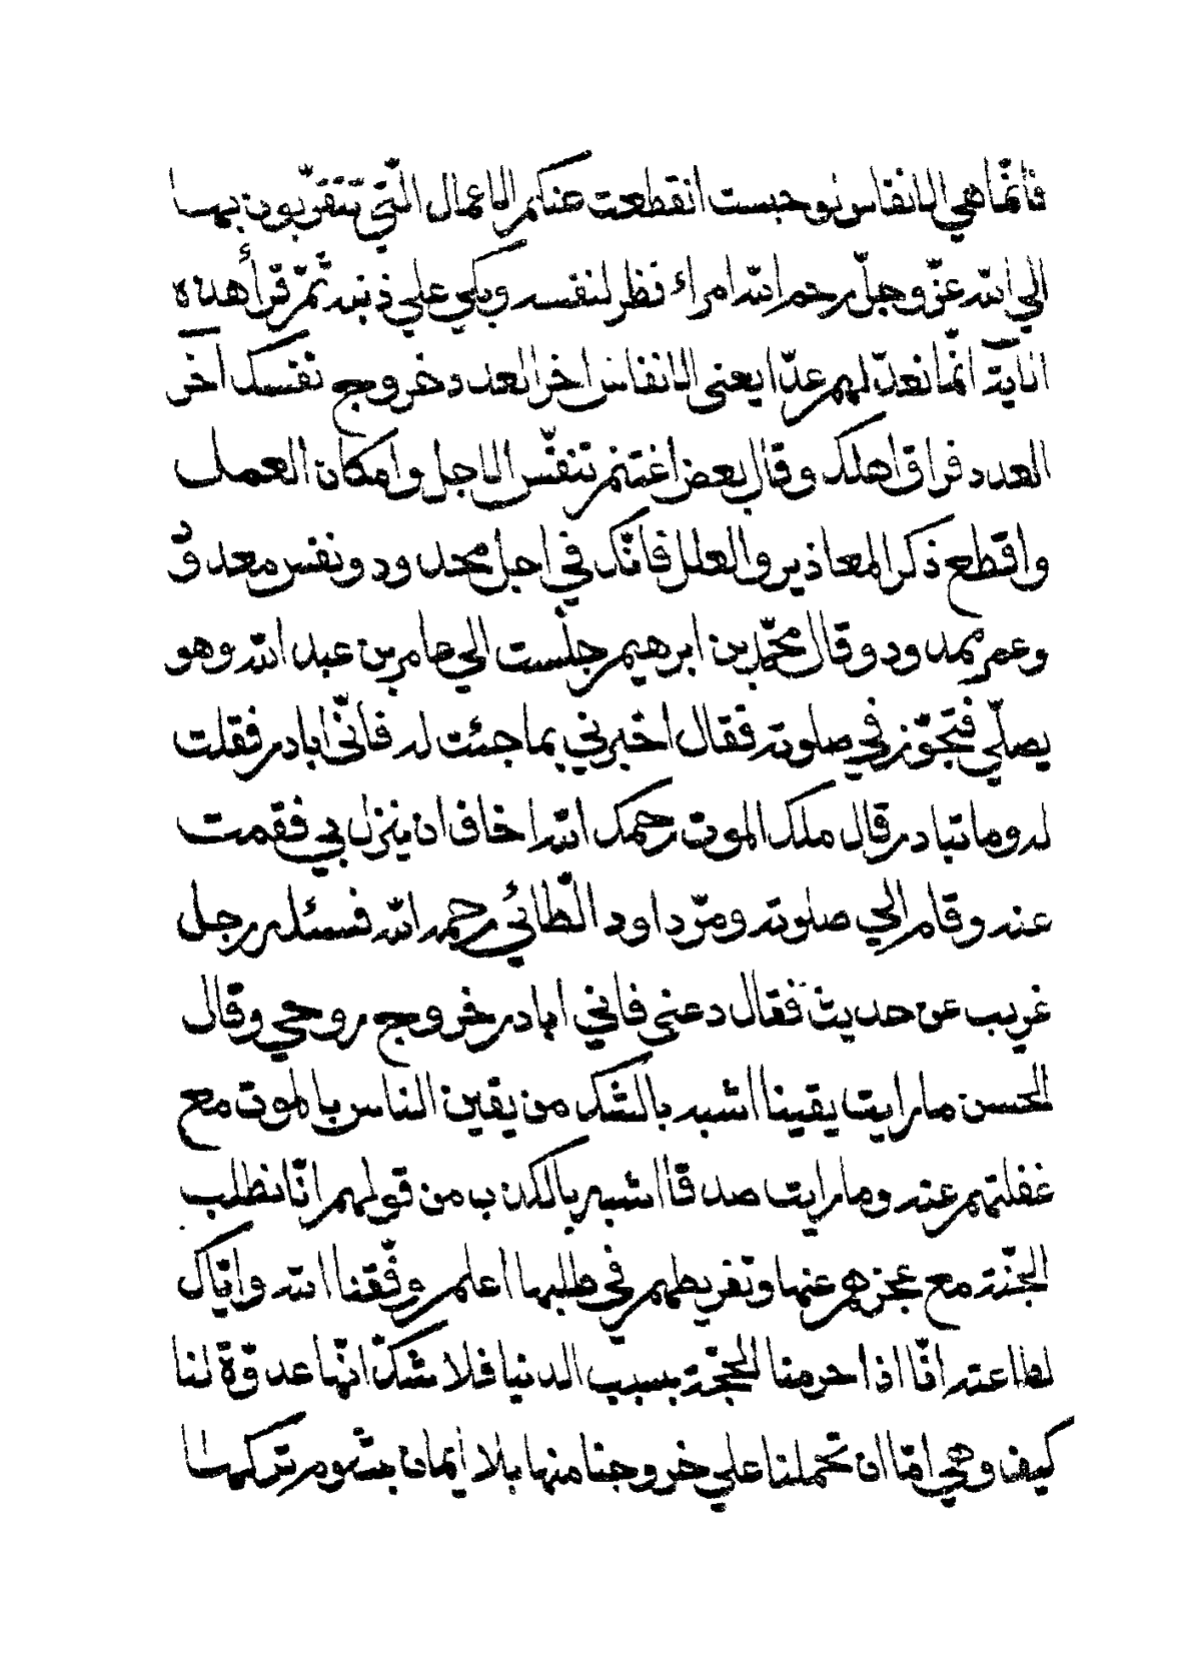 فانّما هي الانفاس لو حبست انقطعت عنكم الاعمال الّتي تتقرّبون بها
الي الله عزّ وجلّ رحم الله امراء نظر لنفسه وبكي علي ذنبه ثمّ قرأ هذه
الاية انّما نعدّ لهم عدّا يعني الانفاس اخر العدد خروج نفسك آخر
العدد فراق اهلك وقال بعض اغتنم تنفّس الاجل وامكان العمل
واقطع ذكر المعاذير والعلل فانّك في اجل محدود ونفس معدود
وعمر ممدود وقال محمّد بن ابرهيم جلست الي عامر بن عبد الله وهو
يصلّي فتجوّز في صلوته فقال اخبرني بما جئت له فانّي ابادر فقلت
له وما تبادر قال ملك الموت رحمك الله اخاف ان ينزل بي فقمت
عنه وقام الي صلوته ومرّ داود الطّائي رحمه الله فسئله رجل
غريب عن حديث فقال دعني فاني ابادر خروج روحي وقال
الحسن ما رايت يقينا اشبه بالشك من يقين الناس بالموت مع
غفلتهم عنه وما رايت صدقا اشبه بالكذب من قولهم انّا نطلب
الجنّة مع عجزهم عنها وتفريطهم في طلبها اعلم وفّقنا الله وايّاك
لطاعته انّا اذا حرمنا الجنّة بسبب الدنيا فلا شكّ انّها عدوّة لنا
كيف وهي امّا ان تحملنا علي خروجنا منها بلا ايمان بشوم تركها